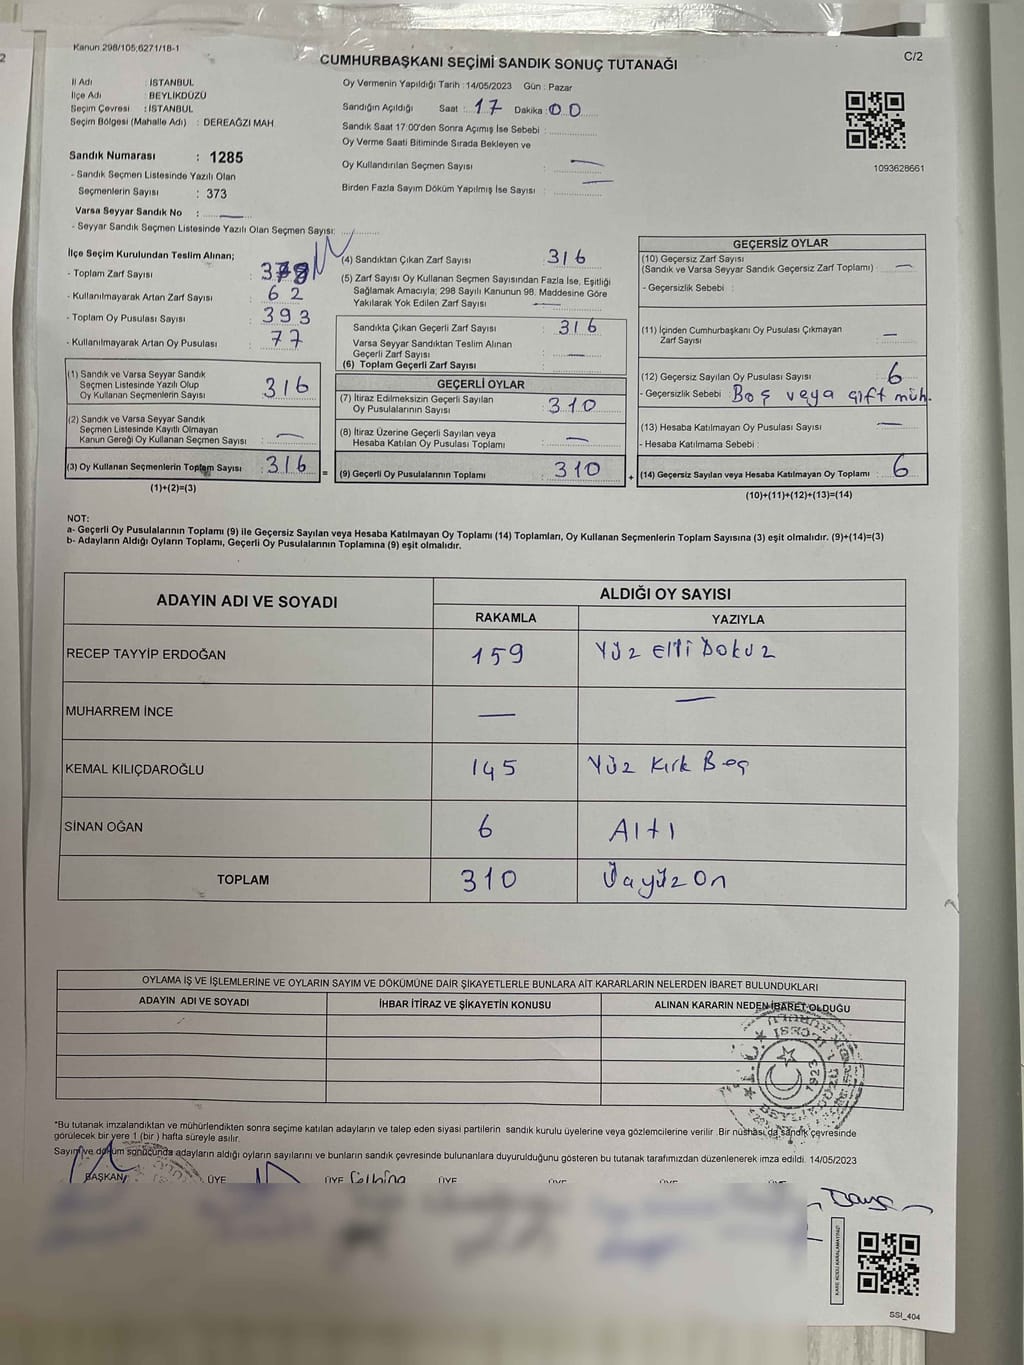 Kanun 298/105;6271/18-1
C/2
CUMHURBAŞKANI SEÇİMİ SANDIK SONUÇ TUTANAĞI
İl Adı : İSTANBUL
İlçe Adı : BEYLİKDÜZÜ
Seçim Çevresi : İSTANBUL
Seçim Bölgesi (Mahalle Adı) : DEREAĞZI MAH.
Oy Vermenin Yapıldığı Tarih : 14/05/2023 Gün : Pazar
Sandığın Açıldığı Saat : 17 Dakika : 00
Sandık Saat 17:00'den Sonra Açımış İse Sebebi :
Oy Verme Saati Bitiminde Sırada Bekleyen ve
Oy Kullandırılan Seçmen Sayısı : —
Birden Fazla Sayım Döküm Yapılmış İse Sayısı : —
1093628661
Sandık Numarası : 1285
- Sandık Seçmen Listesinde Yazılı Olan
Seçmenlerin Sayısı : 373
Varsa Seyyar Sandık No : —
- Seyyar Sandık Seçmen Listesinde Yazılı Olan Seçmen Sayısı:
İlçe Seçim Kurulundan Teslim Alınan;
- Toplam Zarf Sayısı :
- Kullanılmayarak Artan Zarf Sayısı : 62
- Toplam Oy Pusulası Sayısı : 393
- Kullanılmayarak Artan Oy Pusulası : 77
(1) Sandık ve Varsa Seyyar Sandık
Seçmen Listesinde Yazılı Olup
Oy Kullanan Seçmenlerin Sayısı : 316
(2) Sandık ve Varsa Seyyar Sandık
Seçmen Listesinde Kayıtlı Olmayan
Kanun Gereği Oy Kullanan Seçmen Sayısı : —
(3) Oy Kullanan Seçmenlerin Toplam Sayısı : 316
(1)+(2)=(3)
(4) Sandıktan Çıkan Zarf Sayısı : 316
(5) Zarf Sayısı Oy Kullanan Seçmen Sayısından Fazla İse, Eşitliği
Sağlamak Amacıyla; 298 Sayılı Kanunun 98. Maddesine Göre
Yakılarak Yok Edilen Zarf Sayısı : —
Sandıkta Çıkan Geçerli Zarf Sayısı : 316
Varsa Seyyar Sandıktan Teslim Alınan
Geçerli Zarf Sayısı : —
(6) Toplam Geçerli Zarf Sayısı :
GEÇERLİ OYLAR
(7) İtiraz Edilmeksizin Geçerli Sayılan
Oy Pusulalarının Sayısı : 310
(8) İtiraz Üzerine Geçerli Sayılan veya
Hesaba Katılan Oy Pusulası Toplamı : —
= (9) Geçerli Oy Pusulalarının Toplamı : 310
GEÇERSİZ OYLAR
(10) Geçersiz Zarf Sayısı
(Sandık ve Varsa Seyyar Sandık Geçersiz Zarf Toplamı) : —
- Geçersizlik Sebebi :
(11) İçinden Cumhurbaşkanı Oy Pusulası Çıkmayan
Zarf Sayısı : —
(12) Geçersiz Sayılan Oy Pusulası Sayısı : 6
- Geçersizlik Sebebi : Boş veya çift müh.
(13) Hesaba Katılmayan Oy Pusulası Sayısı : —
- Hesaba Katılmama Sebebi :
+ (14) Geçersiz Sayılan veya Hesaba Katılmayan Oy Toplamı : 6
(10)+(11)+(12)+(13)=(14)
NOT:
a- Geçerli Oy Pusulalarının Toplamı (9) ile Geçersiz Sayılan veya Hesaba Katılmayan Oy Toplamı (14) Toplamları, Oy Kullanan Seçmenlerin Toplam Sayısına (3) eşit olmalıdır. (9)+(14)=(3)
b- Adayların Aldığı Oyların Toplamı, Geçerli Oy Pusulalarının Toplamına (9) eşit olmalıdır.
ADAYIN ADI VE SOYADI
ALDIĞI OY SAYISI
RAKAMLA YAZIYLA
RECEP TAYYİP ERDOĞAN 159 Yüz Elli Dokuz
MUHARREM İNCE — —
KEMAL KILIÇDAROĞLU 145 Yüz Kırk Beş
SİNAN OĞAN 6 Altı
TOPLAM 310 Üçyüz On
OYLAMA İŞ VE İŞLEMLERİNE VE OYLARIN SAYIM VE DÖKÜMÜNE DAİR ŞİKAYETLERLE BUNLARA AİT KARARLARIN NELERDEN İBARET BULUNDUKLARI
ADAYIN ADI VE SOYADI İHBAR İTİRAZ VE ŞİKAYETİN KONUSU ALINAN KARARIN NEDEN İBARET OLDUĞU
1923
*Bu tutanak imzalandıktan ve mühürlendikten sonra seçime katılan adayların ve talep eden siyasi partilerin sandık kurulu üyelerine veya gözlemcilerine verilir .Bir nüshası da sandık çevresinde
görülecek bir yere 1 (bir ) hafta süreyle asılır.
Sayım ve döküm sonucunda adayların aldığı oyların sayılarını ve bunların sandık çevresinde bulunanlara duyurulduğunu gösteren bu tutanak tarafımızdan düzenlenerek imza edildi. 14/05/2023
BAŞKAN ÜYE ÜYE ÜYE
SSI_404